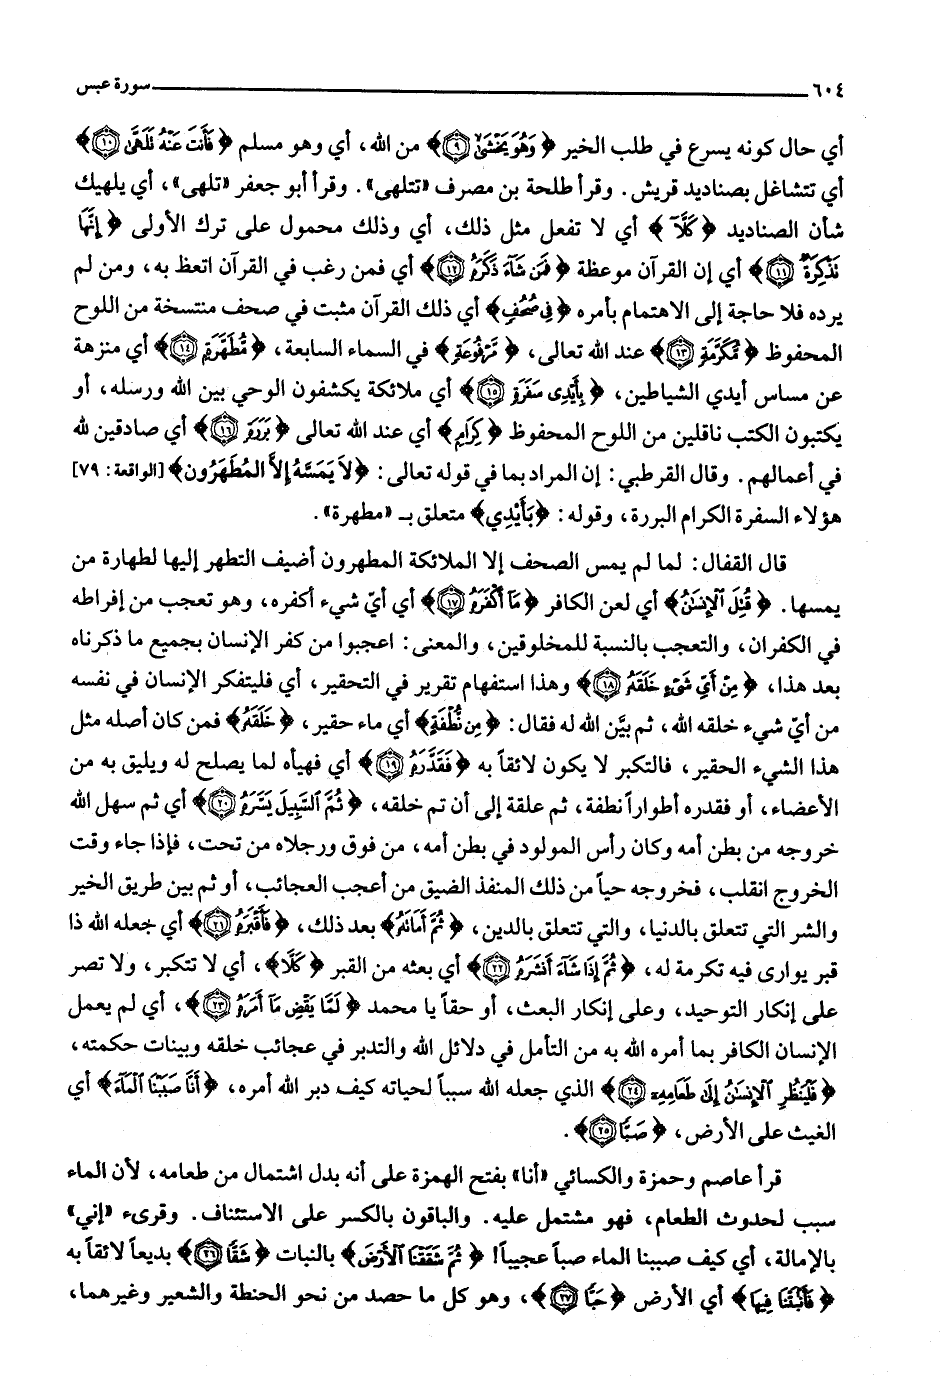 ٦٠٤ سورة عبس
أي حال كونه يسرع في طلب الخير ﴿وَهُوَ يَخْشَىٰ ٩﴾ من الله، أي وهو مسلم ﴿فَأَنتَ عَنْهُ تَلَهَّىٰ ١٠﴾
أي تتشاغل بصناديد قريش. وقرأ طلحة بن مصرف «تتلهى». وقرأ أبو جعفر «تلهى»، أي يلهيك
شأن الصناديد ﴿كَلَّآ﴾ أي لا تفعل مثل ذلك، أي وذلك محمول على ترك الأولى ﴿إِنَّهَا
تَذْكِرَةٌ ١١﴾ أي إن القرآن موعظة ﴿فَمَن شَآءَ ذَكَرَهُ ١٢﴾ أي فمن رغب في القرآن اتعظ به، ومن لم
يرده فلا حاجة إلى الاهتمام بأمره ﴿فِي صُحُفٍ﴾ أي ذلك القرآن مثبت في صحف منتسخة من اللوح
المحفوظ ﴿مُّكَرَّمَةٍ ١٣﴾ عند الله تعالى، ﴿مَّرْفُوعَةٍ﴾ في السماء السابعة، ﴿مُّطَهَّرَةٍ ١٤﴾ أي منزهة
عن مساس أيدي الشياطين، ﴿بِأَيْدِي سَفَرَةٍ ١٥﴾ أي ملائكة يكشفون الوحي بين الله ورسله، أو
يكتبون الكتب ناقلين من اللوح المحفوظ ﴿كِرَامٍ﴾ أي عند الله تعالى ﴿بَرَرَةٍ ١٦﴾ أي صادقين لله
في أعمالهم. وقال القرطبي: إن المراد بما في قوله تعالى: ﴿لاَ يَمَسَّهُ إِلاَّ المُطَهَرُون﴾ [الواقعة: ٧٩]
هؤلاء السفرة الكرام البررة، وقوله: ﴿بَأَيْدِي﴾ متعلق بـ «مطهرة».
قال القفال: لما لم يمس الصحف إلا الملائكة المطهرون أضيف التطهر إليها لطهارة من
يمسها. ﴿قُتِلَ ٱلْإِنسَٰنُ﴾ أي لعن الكافر ﴿مَآ أَكْفَرَهُ ١٧﴾ أي أيّ شيء أكفره، وهو تعجب من إفراطه
في الكفران، والتعجب بالنسبة للمخلوقين، والمعنى: اعجبوا من كفر الإنسان بجميع ما ذكرناه
بعد هذا، ﴿مِنْ أَيِّ شَيْءٍ خَلَقَهُ ١٨﴾ وهذا استفهام تقرير في التحقير، أي فليتفكر الإنسان في نفسه
من أيّ شيء خلقه الله، ثم بيَّن الله له فقال: ﴿مِن نُّطْفَةٍ﴾ أي ماء حقير، ﴿خَلَقَهُ﴾ فمن كان أصله مثل
هذا الشيء الحقير، فالتكبر لا يكون لائقاً به ﴿فَقَدَّرَهُ ١٩﴾ أي فهيأه لما يصلح له ويليق به من
الأعضاء، أو فقدره أطواراً نطفة، ثم علقة إلى أن تم خلقه، ﴿ثُمَّ ٱلسَّبِيلَ يَسَّرَهُ ٢٠﴾ أي ثم سهل الله
خروجه من بطن أمه وكان رأس المولود في بطن أمه، من فوق ورجلاه من تحت، فإذا جاء وقت
الخروج انقلب، فخروجه حياً من ذلك المنفذ الضيق من أعجب العجائب، أو ثم بين طريق الخير
والشر التي تتعلق بالدنيا، والتي تتعلق بالدين، ﴿ثُمَّ أَمَاتَهُ﴾ بعد ذلك، ﴿فَأَقْبَرَهُ ٢١﴾ أي جعله الله ذا
قبر يوارى فيه تكرمة له، ﴿ثُمَّ إِذَا شَآءَ أَنشَرَهُ ٢٢﴾ أي بعثه من القبر ﴿كَلَّا﴾، أي لا تتكبر، ولا تصر
على إنكار التوحيد، وعلى إنكار البعث، أو حقاً يا محمد ﴿لَمَّا يَقْضِ مَآ أَمَرَهُ ٢٣﴾، أي لم يعمل
الإنسان الكافر بما أمره الله به من التأمل في دلائل الله والتدبر في عجائب خلقه وبينات حكمته،
﴿فَلْيَنظُرِ ٱلْإِنسَٰنُ إِلَىٰ طَعَامِهِ ٢٤﴾ الذي جعله الله سبباً لحياته كيف دبر الله أمره، ﴿أَنَّا صَبَبْنَا ٱلْمَآءَ﴾ أي
الغيث على الأرض، ﴿صَبًّا ٢٥﴾.
قرأ عاصم وحمزة والكسائي «أنا» بفتح الهمزة على أنه بدل اشتمال من طعامه، لأن الماء
سبب لحدوث الطعام، فهو مشتمل عليه. والباقون بالكسر على الاستئناف. وقرىء «إني»
بالإمالة، أي كيف صببنا الماء صباً عجيباً! ﴿ثُمَّ شَقَقْنَا ٱلْأَرْضَ﴾ بالنبات ﴿شَقًّا ٢٦﴾ بديعاً لائقاً به
﴿فَأَنۢبَتْنَا فِيهَا﴾ أي الأرض ﴿حَبًّا ٢٧﴾، وهو كل ما حصد من نحو الحنطة والشعير وغيرهما،